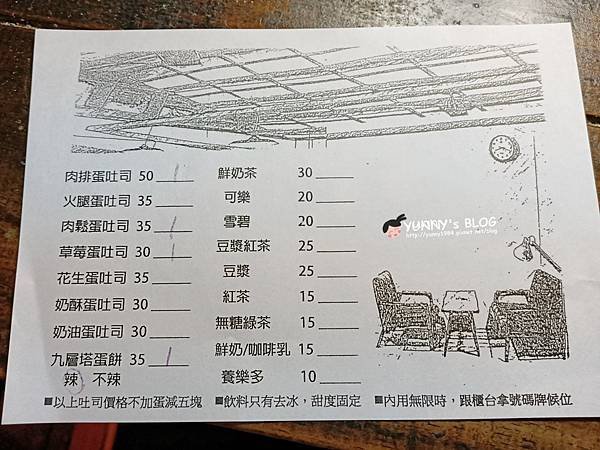 肉排蛋吐司 50
火腿蛋吐司 35
肉鬆蛋吐司 35
草莓蛋吐司 30
花生蛋吐司 35
奶酥蛋吐司 30
奶油蛋吐司 30
九層塔蛋餅 35
辣 不辣
鮮奶茶 30
可樂 20
雪碧 20
豆漿紅茶 25
豆漿 25
紅茶 15
無糖綠茶 15
鮮奶/咖啡乳 15
養樂多 10
YUNNY's BLOG
http://yunny1984.pixnet.net/blog
■以上吐司價格不加蛋減五塊 ■飲料只有去冰，甜度固定 ■內用無限時，跟櫃台拿號碼牌候位